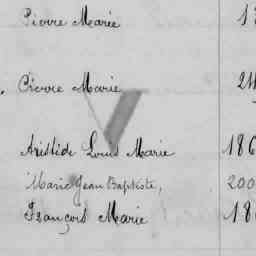 Pierre Marie 1
Pierre Marie 2
Aristide Louis Marie 186
Marie Jean Baptiste, 200
François Marie 18